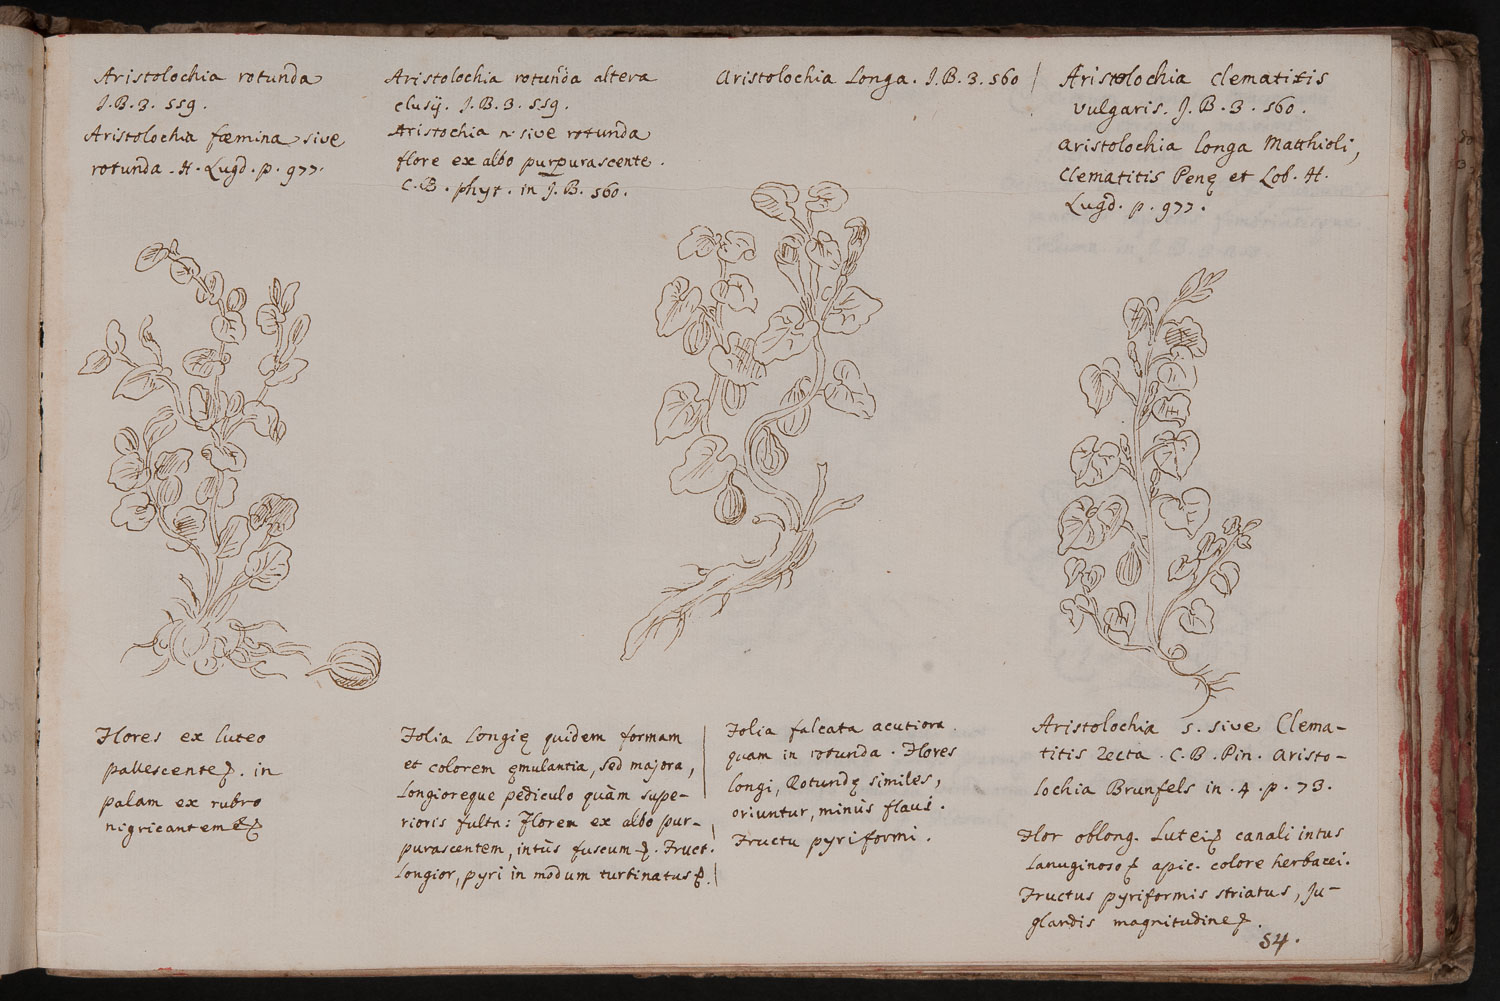 Aristolochia rotunda
J.B.3. 559.
Aristolochia fæmina sive
rotunda. H. Lugd. p. 977.
Aristolochia rotunda altera
clusij. J.B.3. 559.
Aristochia n. sive rotunda
flore ex albo purpurascente.
C.B. phyt. in J.B. 560.
Aristolochia Longa. J.B.3. 560
Aristolochia clematitis
vulgaris. J.B.3. 560.
Aristolochia longa Matthioli,
Clematitis Penę et Lob. H.
Lugd. p. 977.
Flores ex luteo
pallescente. in
palam ex rubro
nigricantem
Folia Longię quidem formam
et colorem ęmulantia, sed majora,
Longioreque pediculo quàm supe-
rioris fulta: Florem ex albo pur-
purascentem, intùs fuscum. Fruct.
Longior, pyri in modum turbinatus.
Folia falcata acutiora
quam in rotunda. Flores
longi, Rotundę similes,
oriuntur, minùs flavi.
Fructu pyriformi.
Aristolochia 5. sive Clema-
titis recta. C.B. Pin. Aristo-
lochia Brunfels in. 4. p. 73.
Flor oblong. Lutei canali intus
Lanuginoso apic. colore herbacei.
Fructus pyriformis striatus, Ju-
glandis magnitudine.
54.